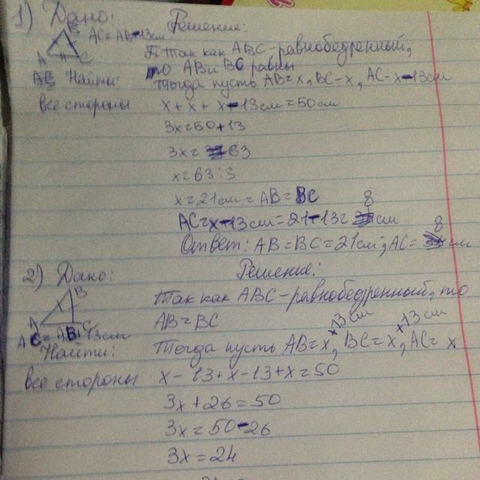 1) Дано:
Решение:
AC = AB - 13 см
A C
Так как ABC - равнобедренный,
то AB и BC равны
Найти:
все стороны
Тогда пусть AB = x, BC - x, AC - x - 13 см
x + x + x - 13 см = 50 см
3x = 50 + 13
3x = 63
x = 63 : 3
x = 21 см = AB = BC
AC = x - 13 см = 21 - 13 = 8 см
Ответ: AB = BC = 21 см; AC = 8 см
2) Дано:
Решение:
A B C
AC = AB 13 см
Так как ABC - равнобедренный, то
AB = BC
Найти:
все стороны
Тогда пусть AB = x + 13 см, BC = x + 13 см, AC = x
x - 13 + x - 13 + x = 50
3x + 26 = 50
3x = 50 - 26
3x = 24